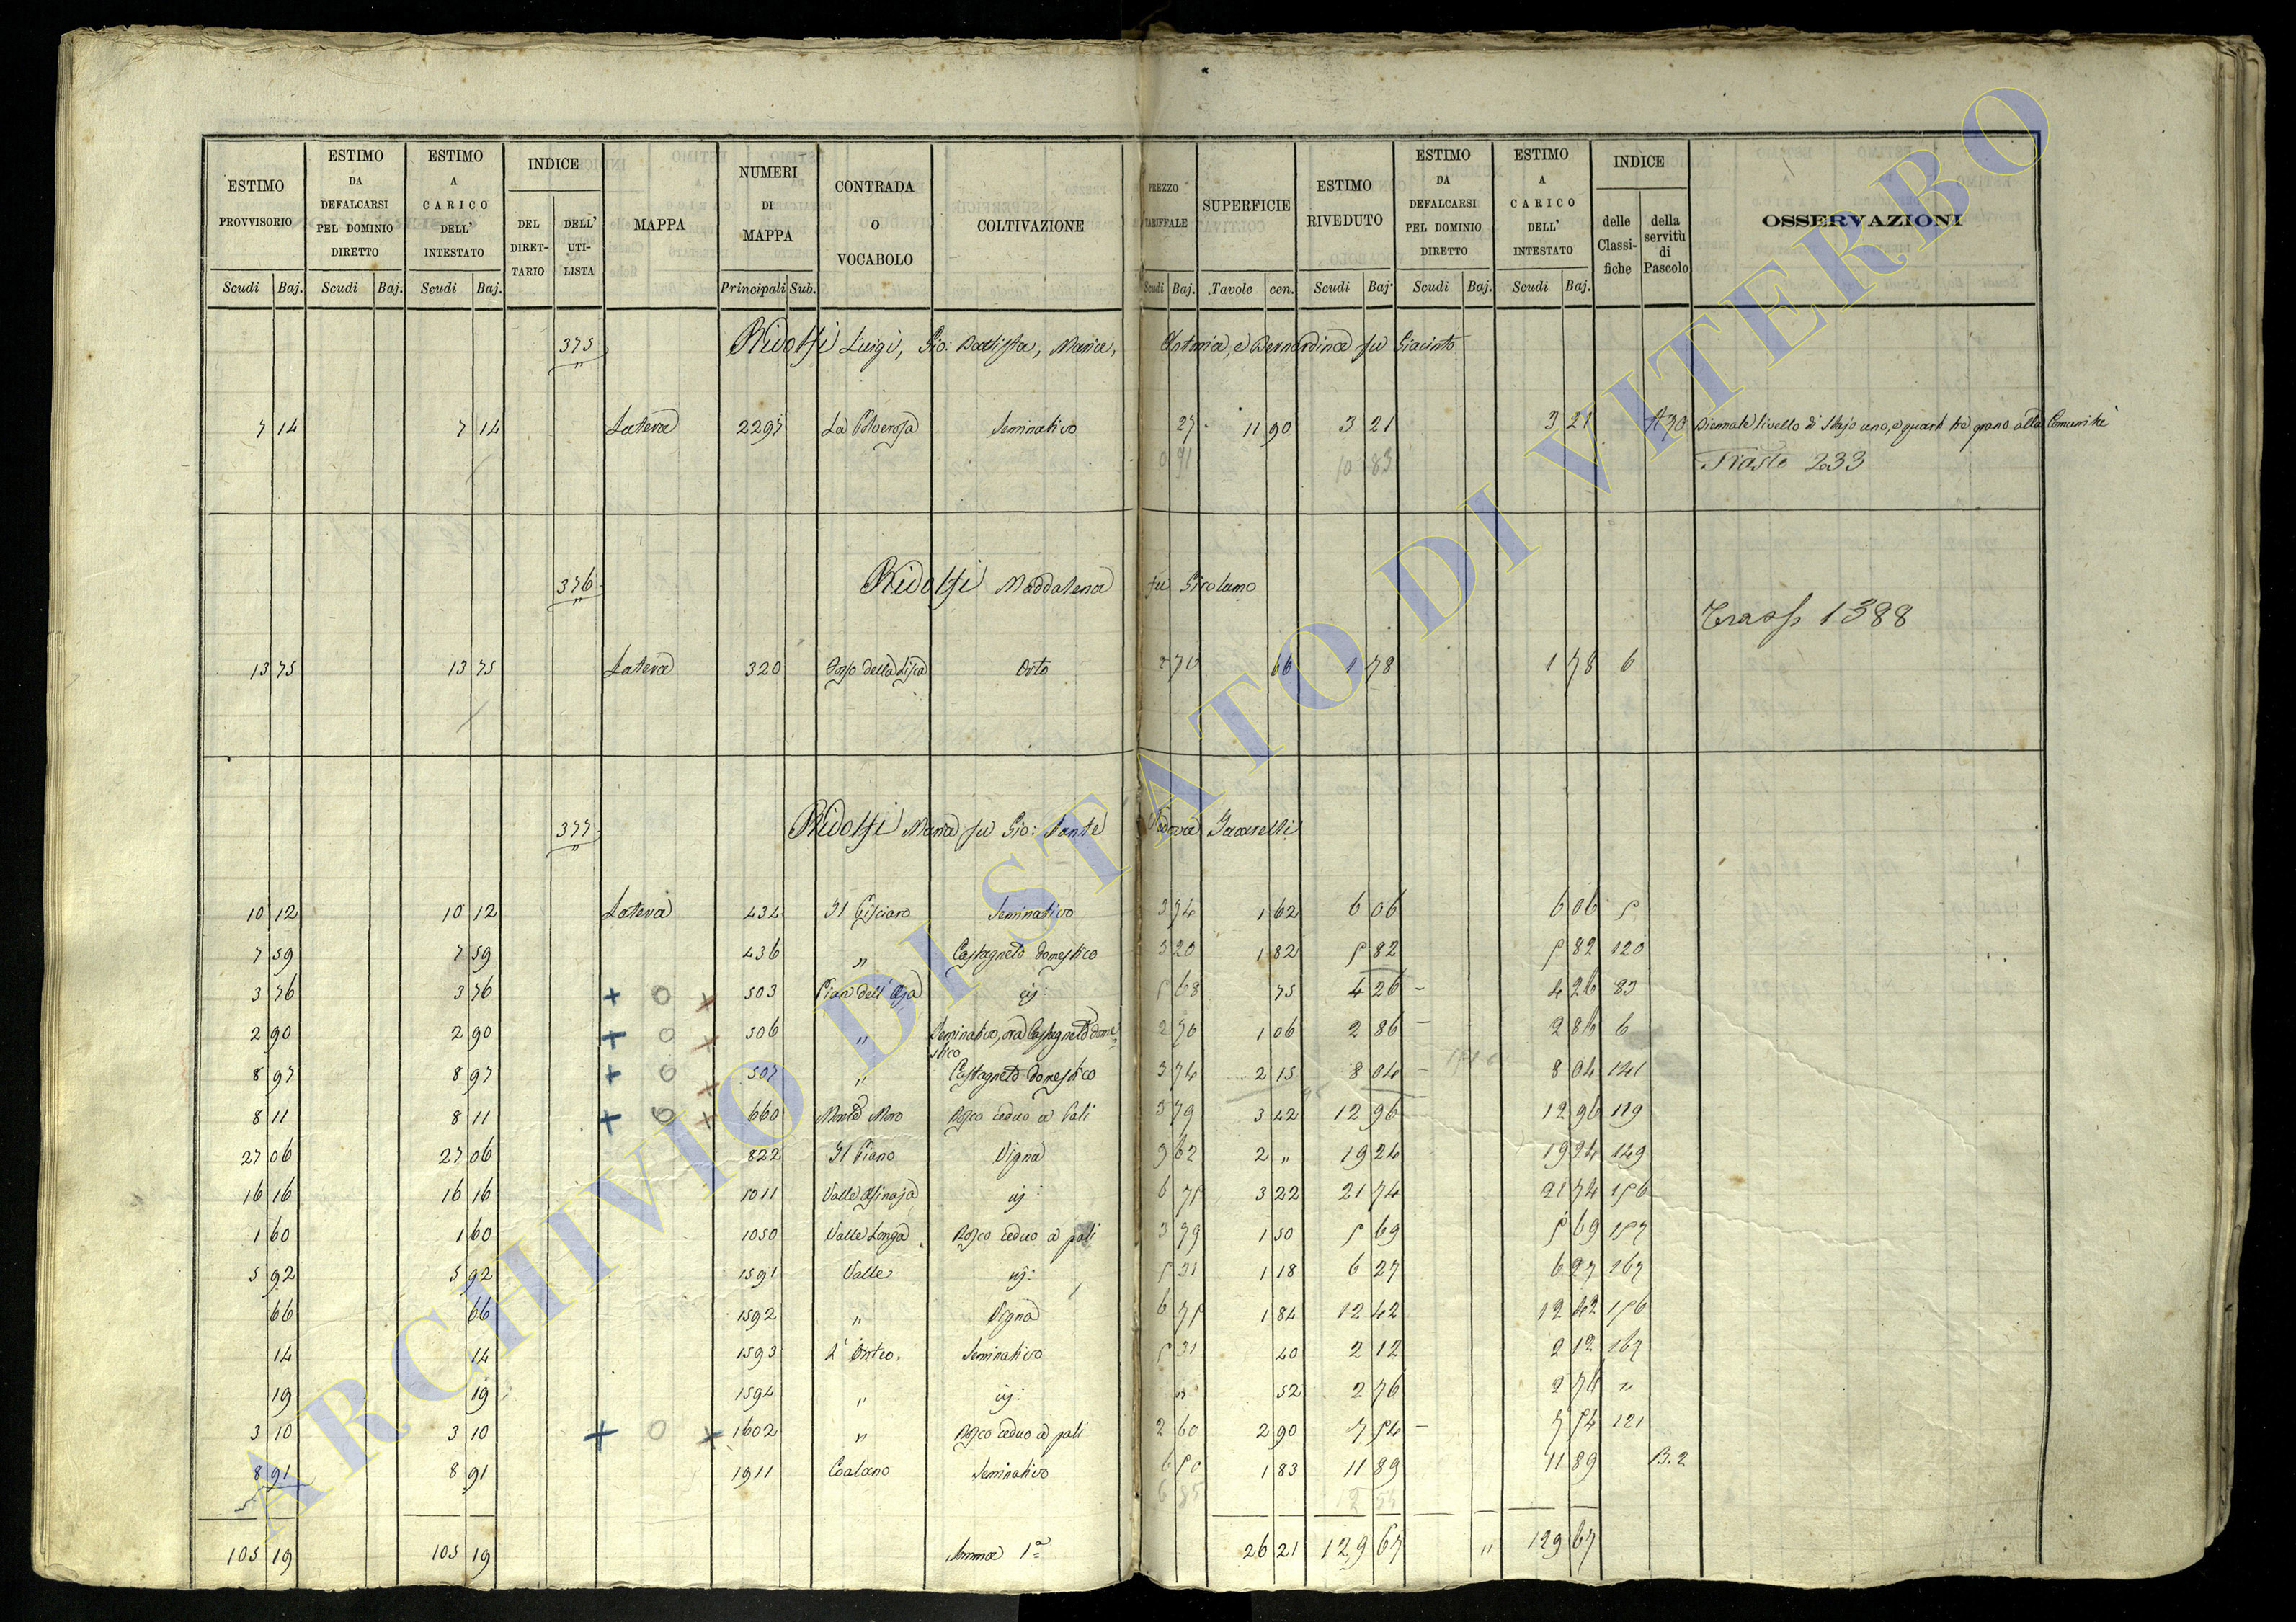 ESTIMO PROVVISORIO | ESTIMO DA DEFALCARSI PEL DOMINIO DIRETTO | ESTIMO A CARICO DELL' INTESTATO | INDICE DEL DIRET-TARIO | DELL' UTI-LISTA | MAPPA | NUMERI DI MAPPA | CONTRADA O VOCABOLO | COLTIVAZIONE | PREZZO TARIFFALE | SUPERFICIE | ESTIMO RIVEDUTO | ESTIMO DA DEFALCARSI PEL DOMINIO DIRETTO | ESTIMO A CARICO DELL' INTESTATO | INDICE delle Classi-fiche | della servitù di Pascolo | OSSERVAZIONI
Scudi Baj. | Scudi Baj. | Scudi Baj. | Principali Sub. | Scudi Baj. | Tavole cen. | Scudi Baj. | Scudi Baj. | Scudi Baj.
375 Ridolfi Luigi, Gio: Battista, Maria, Antonia, e Bernardina fu Giacinto
7 14 | 7 14 | Latera | 2297 | La Polverosa | Seminativo | 27 | 11 90 | 3 21 | 3 21 | A 30 | Biennale livello di Stajo uno, e quarti tre grano alla Comunità
0 91 | 10 83 | 233
376 Ridolfi Maddalena fu Girolamo
Trasp 1388
13 75 | 13 75 | Latera | 320 | Fosso della Lisca | Orto | 2 70 | 66 | 1 78 | 1 78 | 6
377 Ridolfi Maria fu Gio: Sante Vedova
10 12 | 10 12 | Latera | 434 | Il Pisciaro | Seminativo | 3 74 | 1 62 | 6 06 | 6 06 | 5
7 59 | 7 59 | 436 | " | Castagneto domestico | 3 20 | 1 82 | 5 82 | 5 82 | 120
3 76 | 3 76 | + 0 + | 503 | Pian dell' Aja | id: | 5 68 | 75 | 4 26 | 4 26 | 83
2 90 | 2 90 | + 0 + | 506 | " | Seminativo, ora Castagneto dome=stico | 2 70 | 1 06 | 2 86 | 2 86 | 6
8 97 | 8 97 | + 0 + | 507 | " | Castagneto domestico | 3 74 | 2 15 | 8 04 | 8 04 | 121
8 11 | 8 11 | + 0 + | 660 | Monte Moro | Bosco ceduo a Pali | 3 79 | 3 42 | 12 96 | 12 96 | 119
27 06 | 27 06 | 822 | Il Piano | Vigna | 9 62 | 2 " | 19 24 | 19 24 | 149
16 16 | 16 16 | 1011 | Valle Asinaja | id: | 6 75 | 3 22 | 21 74 | 21 74 | 156
1 60 | 1 60 | 1050 | Valle Longa | Bosco ceduo a pali | 3 79 | 1 50 | 5 69 | 5 69 | 157
5 92 | 5 92 | 1591 | Valle | id: | 5 31 | 1 18 | 6 27 | 6 27 | 167
66 | 66 | 1592 | " | Vigna | 6 75 | 1 84 | 12 42 | 12 42 | 156
14 | 14 | 1593 | Seminativo | 5 31 | 40 | 2 12 | 2 12 | 167
19 | 19 | 1594 | " | id: | " | 52 | 2 76 | 2 76 | "
3 10 | 3 10 | + 0 + | 1602 | " | Bosco ceduo a pali | 2 60 | 2 90 | 7 54 | 7 54 | 121
8 91 | 8 91 | 1911 | Coalano | Seminativo | 6 50 | 1 83 | 11 89 | 11 89 | B. 2
6 85
105 19 | 105 19 | Somma 1ª | 26 21 | 129 67 | " | 129 67
ARCHIVIO DI STATO DI VITERBO